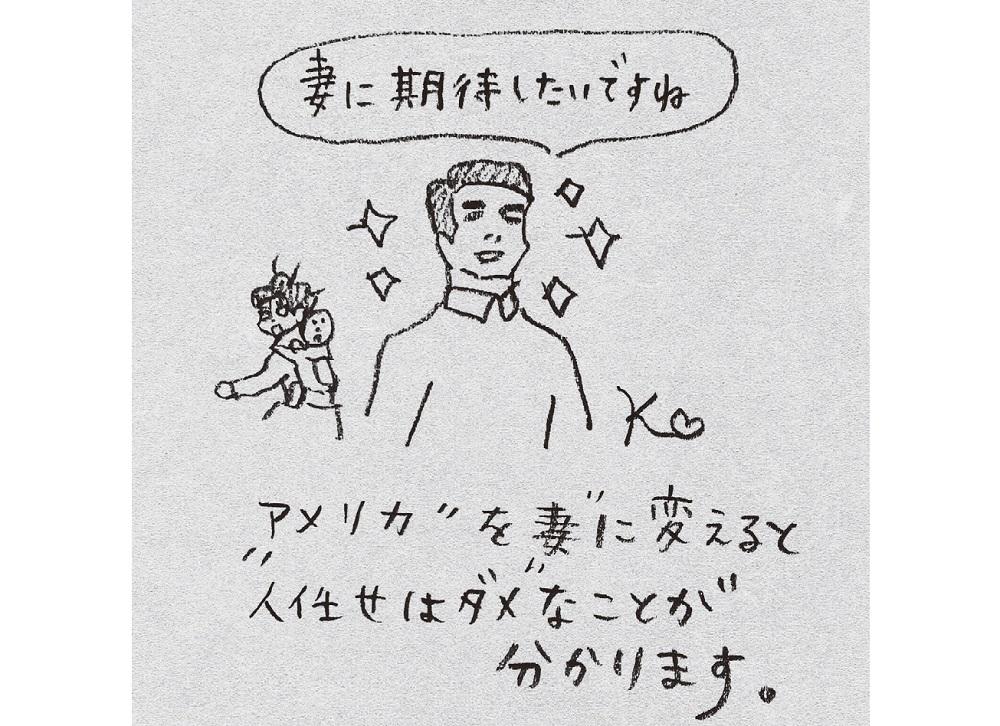 妻に期待したいですね
Ko
アメリカ"を妻"に変えると
"人任せはダメ"なことが
分かります。